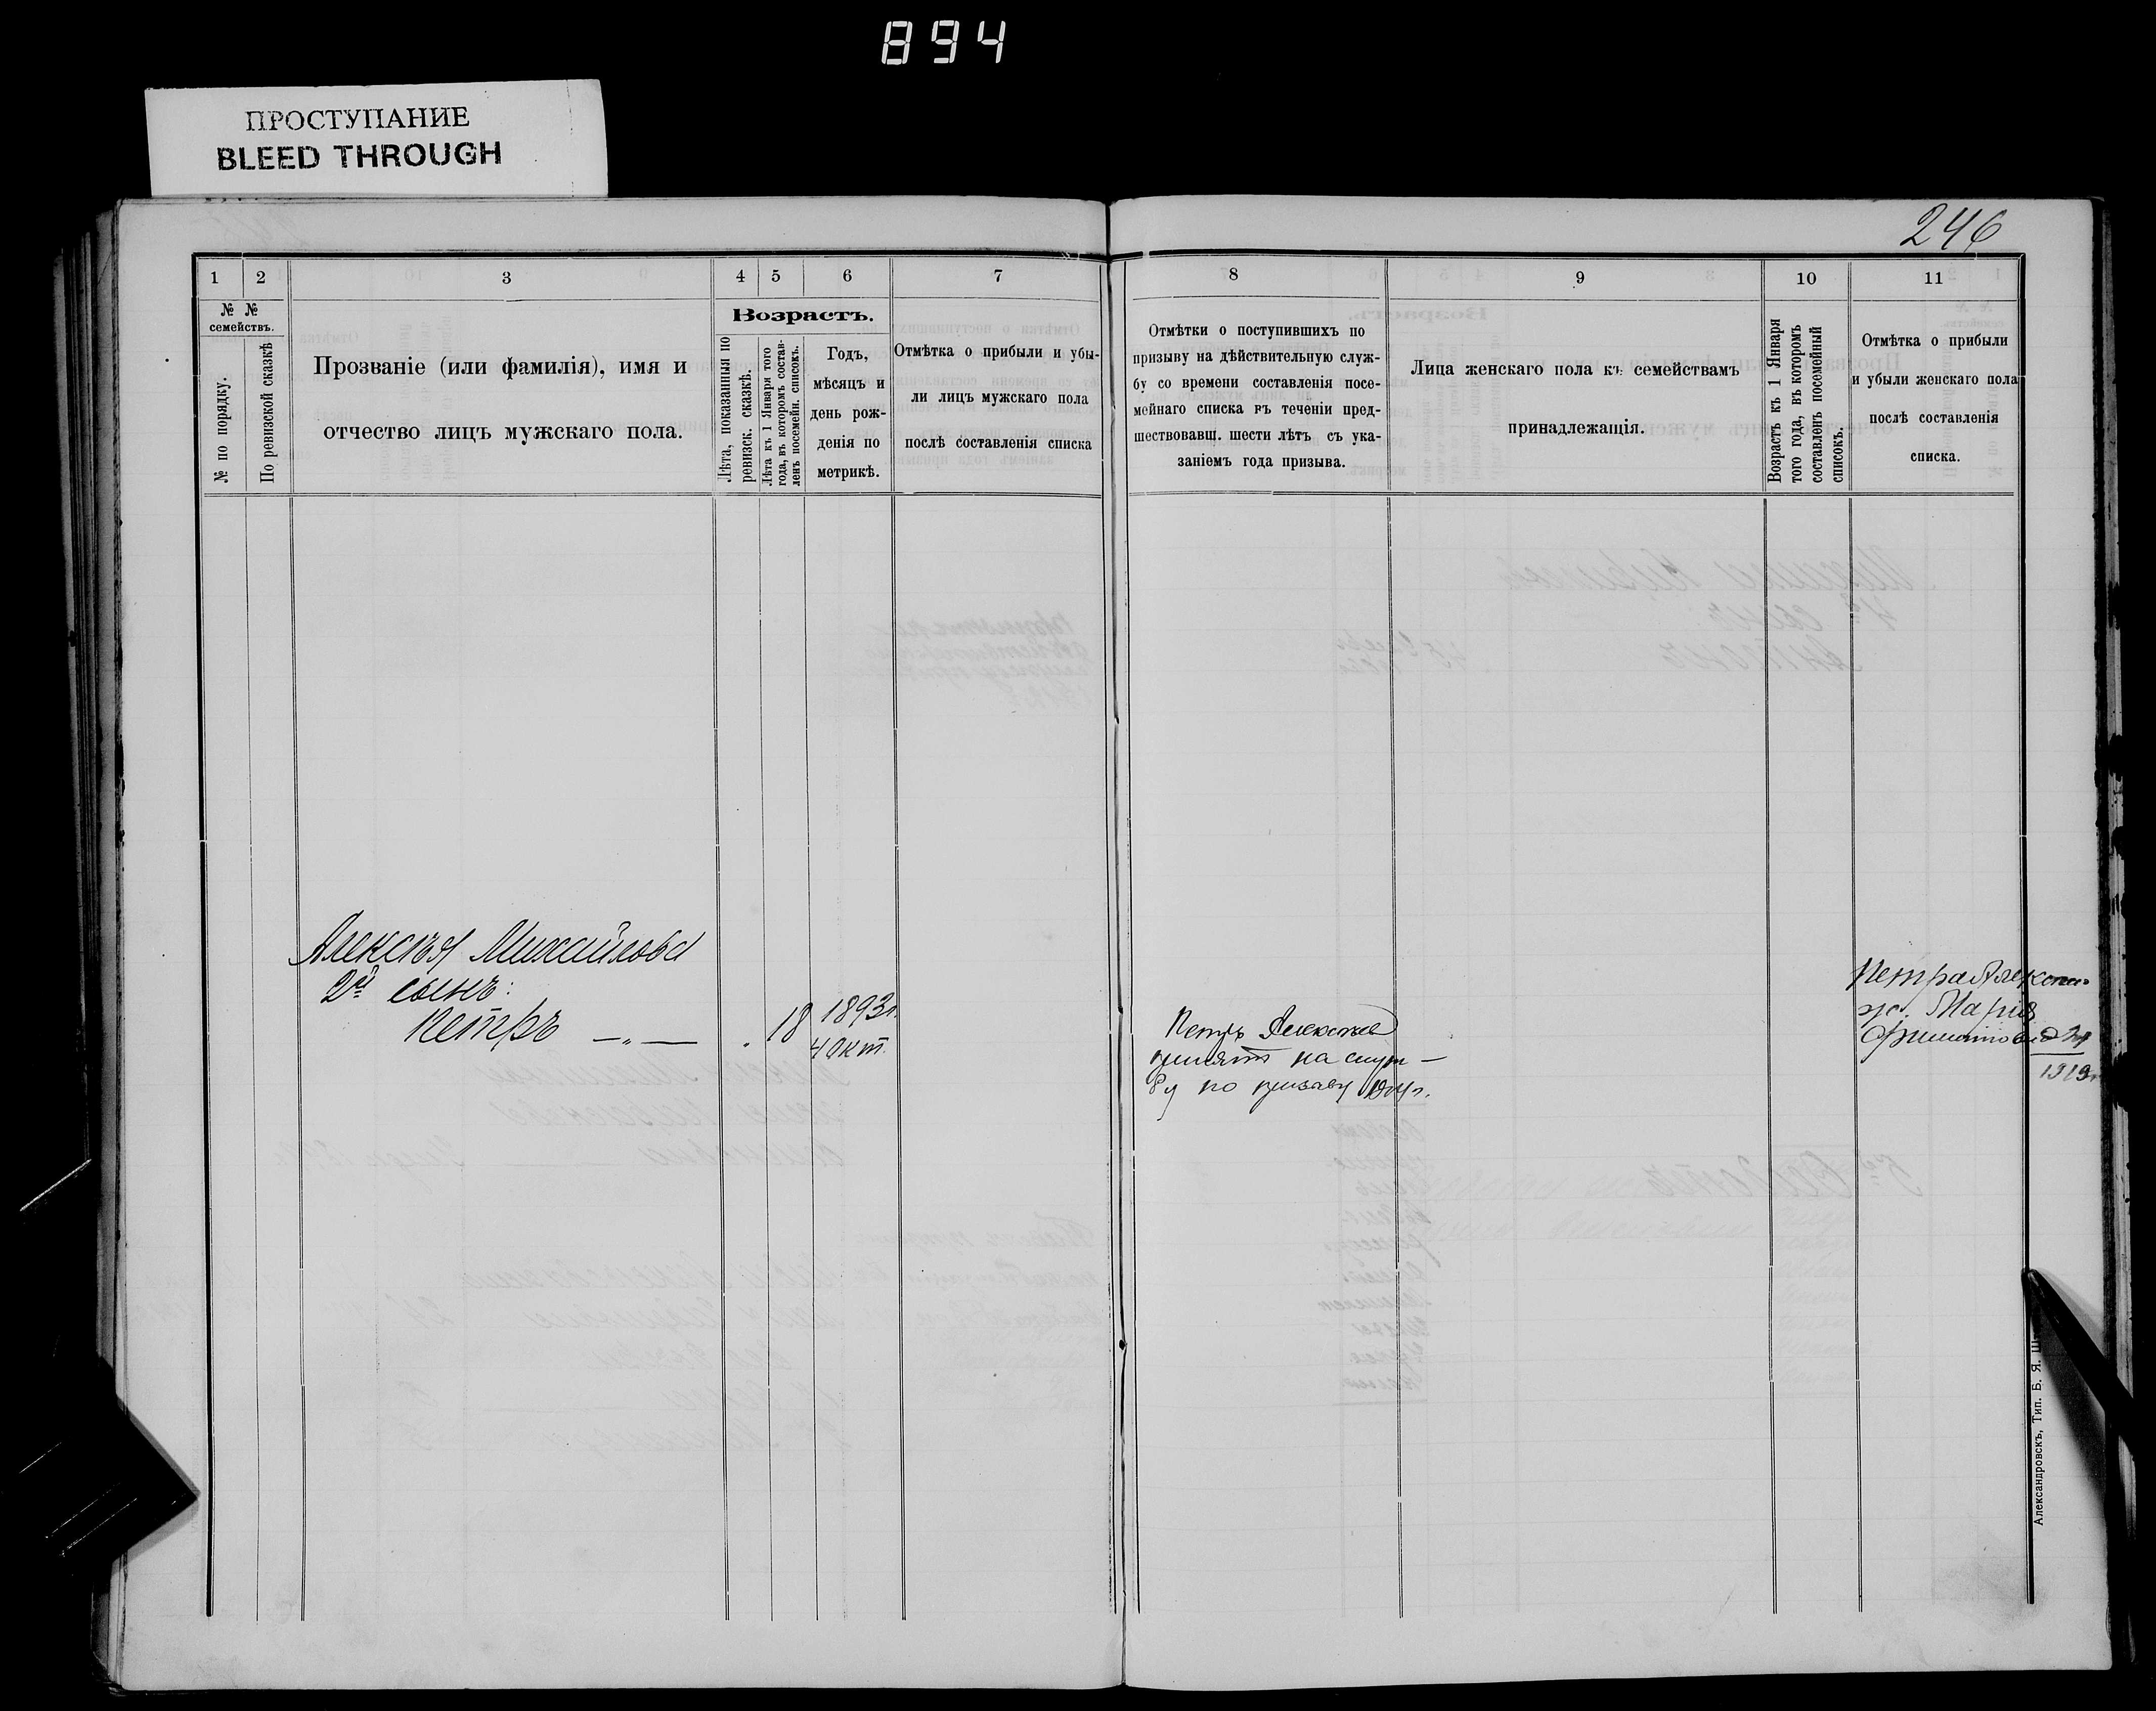 894
ПРОСТУПАНИЕ
BLEED THROUGH
246
1 2 3 4 5 6 7
№ №
семействъ.
№ по порядку.
По ревизской сказкѣ
Прозваніе (или фамилія), имя и
отчество лицъ мужскаго пола.
Возрастъ.
Лѣта, показанныя по
ревизск. сказкѣ.
Лѣта къ 1 Января того
года, въ которомъ состав-
ленъ посемейн. списокъ.
Годъ,
мѣсяцъ и
день рож-
денія по
метрикѣ.
Отмѣтка о прибыли и убы-
ли лицъ мужскаго пола
послѣ составленія списка
8 9 10 11
Отмѣтки о поступившихъ по
призыву на дѣйствительную служ-
бу со времени составленія посе-
мейнаго списка въ теченіи пред-
шествовавш. шести лѣтъ съ ука-
заніемъ года призыва.
Лица женскаго пола къ семействамъ
принадлежащія.
Возрастъ къ 1 Января
того года, въ которомъ
составленъ посемейный
списокъ.
Отмѣтка о прибыли
и убыли женскаго пола
послѣ составленія
списка.
Алексѣя Михайлова
2й сынъ:
Петръ —„— 18 1893г.
4 Окт.
Петръ Алексѣев
принятъ на служ-
бу по призыву
Петра Алексѣев
ж. Марія
1913
Александровскъ, Тип. Б. Я.